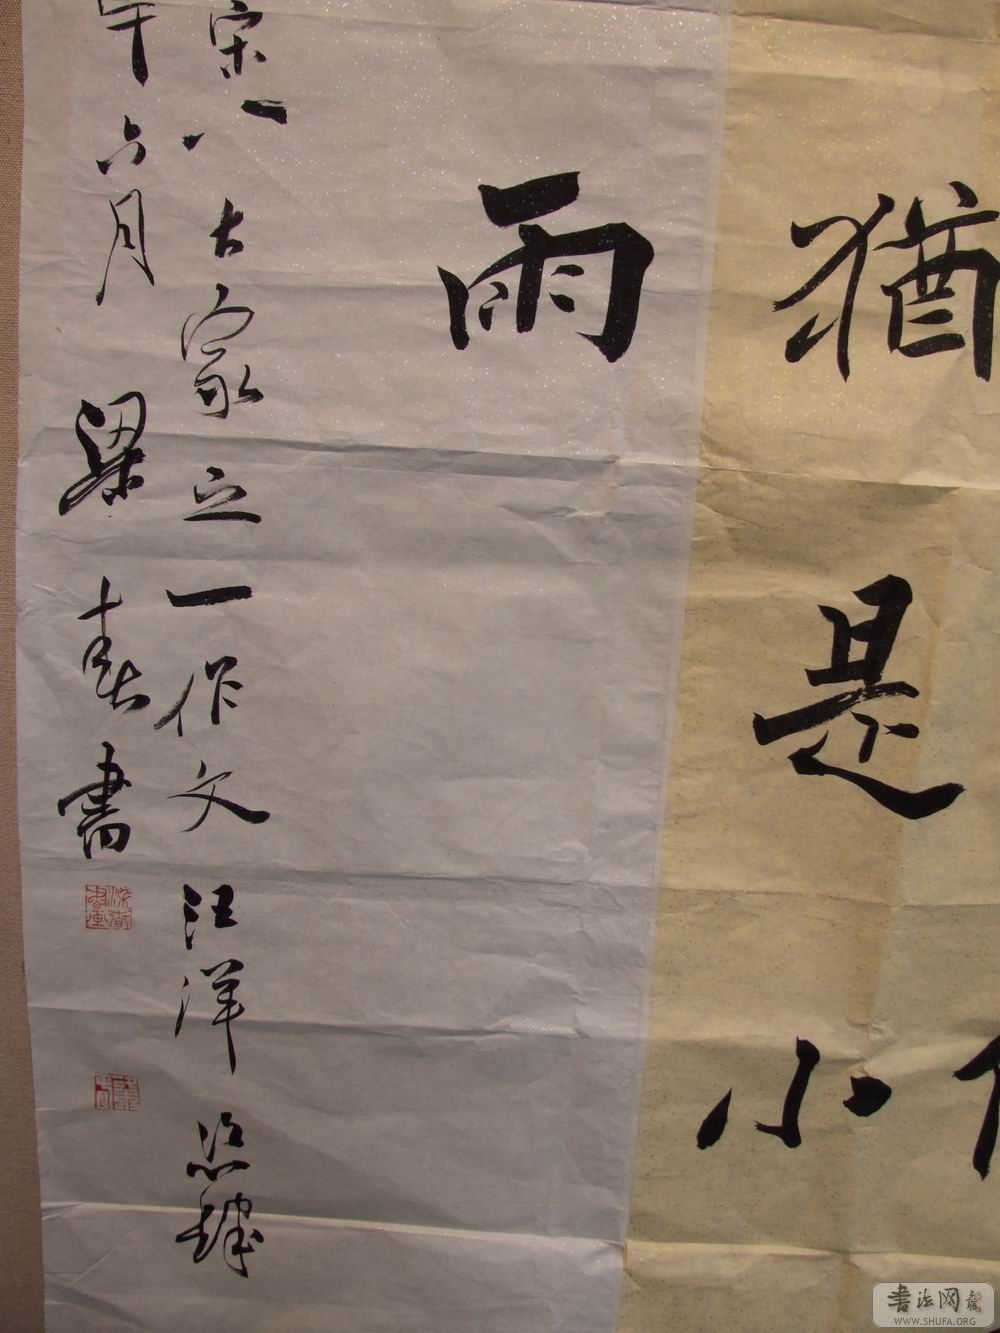 猶是
小
雨
宋八大家之一作文汪洋恣肆
午六月 梁春書
書法网
WWW.SHUFA.ORG